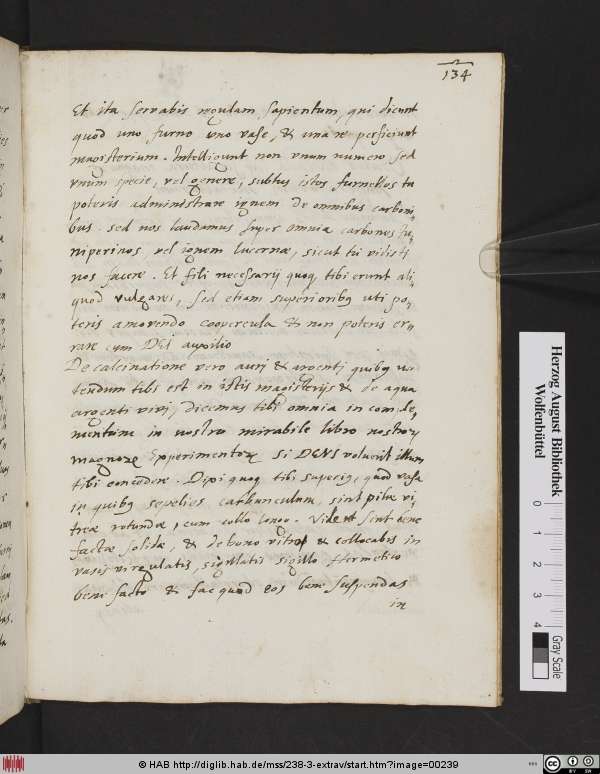 134
Et ita servabis regulam sapientum, qui dicunt
quod uno furno uno vase, & una re perficiunt
magisterium. Intelligunt non unum numero sed
unum specie, vel genere, subtus istos furnellos tu
poteris administrare ignem de omnibus carboni,,
bus. sed nos laudamus super omnia carbones Ju,,
niperinos, vel ignem lucernæ, sicut tu vidisti
nos facere. Et fili necessarij quoq tibi erunt ali,,
quod vulgares, sed etiam superioribq uti po,,
teris amovendo coopercula & non poteris er,,
rare cum DEI auxilio
De calcinatione vero auri & argenti quibq
tendum tibi est in istis magisterijs & de aqua
argenti vivi, dicemus tibi omnia in comple,,
mentum in nostro mirabile libro nostror
magnor Experimentor si DEUS voluerit illum
tibi concedere. Dixi quoq tibi superiq, quod vasa
in quibq sepelies carbunculum, sint pilæ vi,,
treæ rotundæ, cum collo longo. Vide ut sint bene
factæ solidæ, & de bono vitro & collocabis in
vasis virgulatis, sigillatis sigillo Hermetico
bene facto & fac quod eos bene suspendas
in
Herzog August Bibliothek
Wolfenbüttel
0 1 2 3 4
Gray Scale
© HAB http://diglib.hab.de/mss/238-3-extrav/start.htm?image=00239